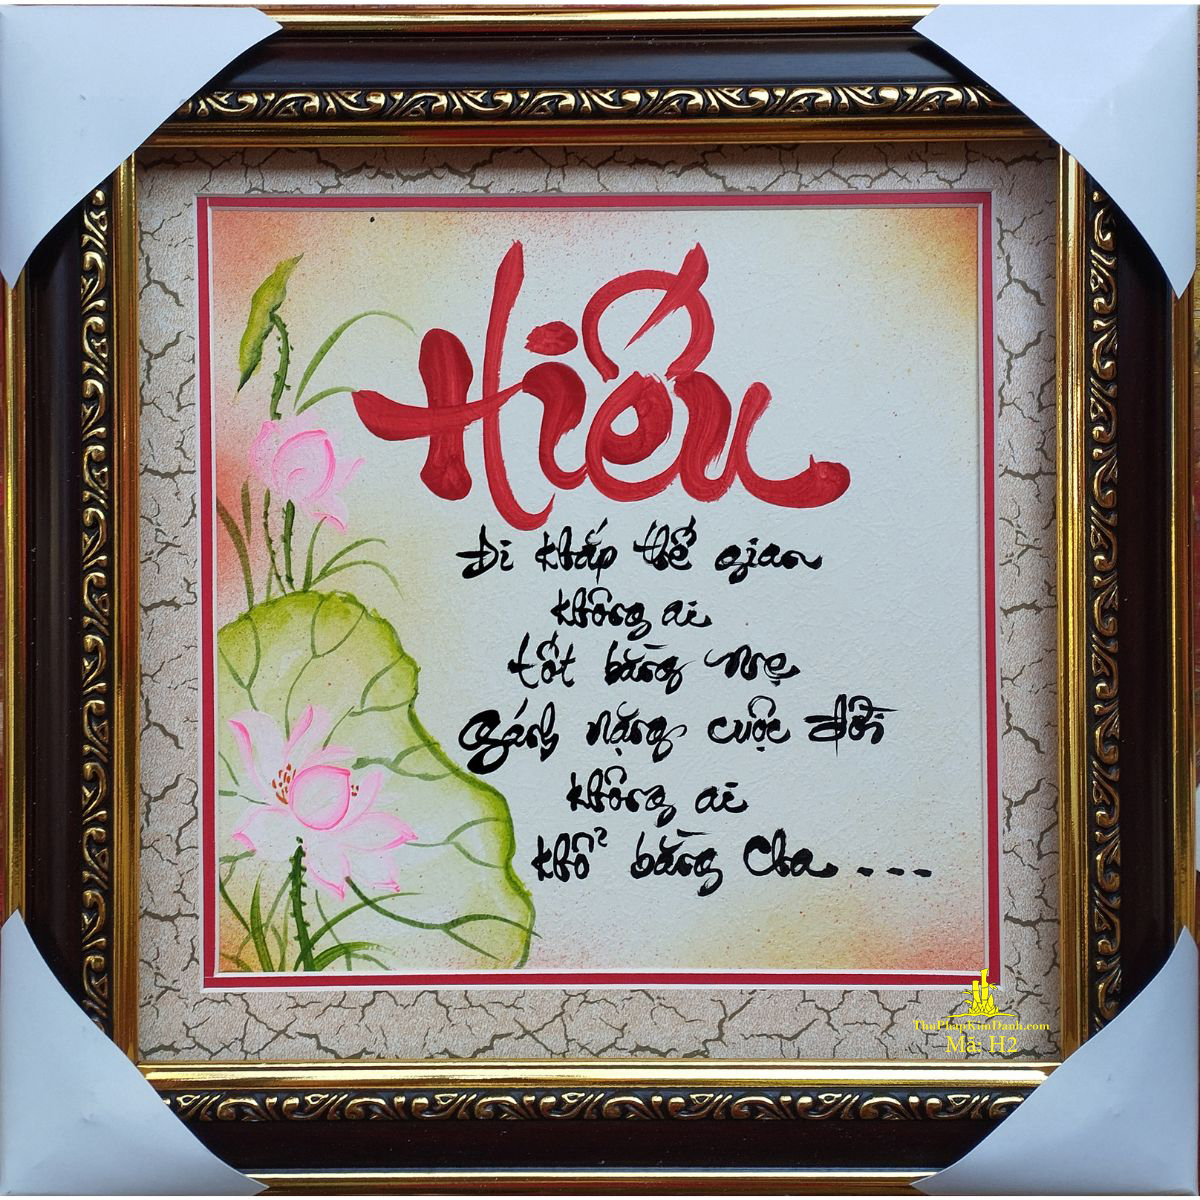 Hiếu
Đi khắp thế gian
không ai
tốt bằng mẹ
Gánh nặng cuộc đời
không ai
khổ bằng Cha....
ThuPhapKimDanh.com
Mã: H2